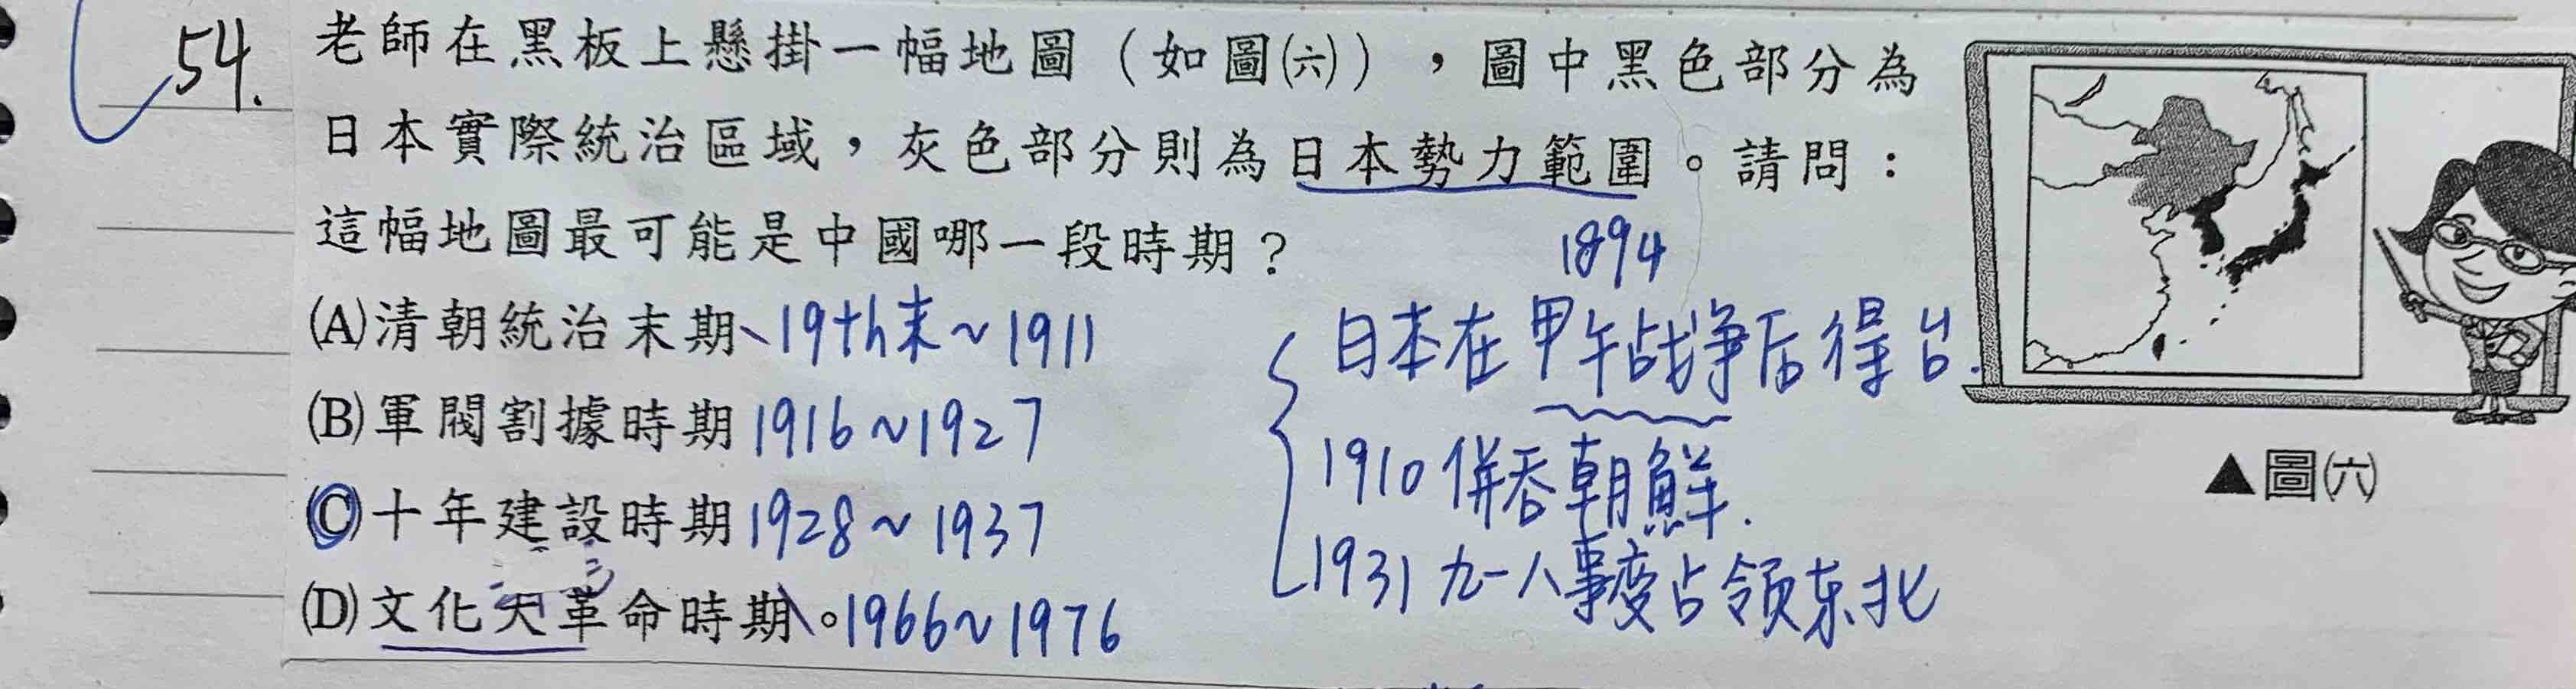 54.
老師在黑板上懸掛一幅地圖（如圖㈥），圖中黑色部分為
日本實際統治區域，灰色部分則為日本勢力範圍。請問：
這幅地圖最可能是中國哪一段時期？
(A)清朝統治末期、19th末~1911
(B)軍閥割據時期 1916~1927
(C)十年建設時期 1928~1937
(D)文化大革命時期。1966~1976
1894
日本在甲午战争后得台.
1910 併吞朝鮮.
1931 九一八事变占领东北
▲圖㈥